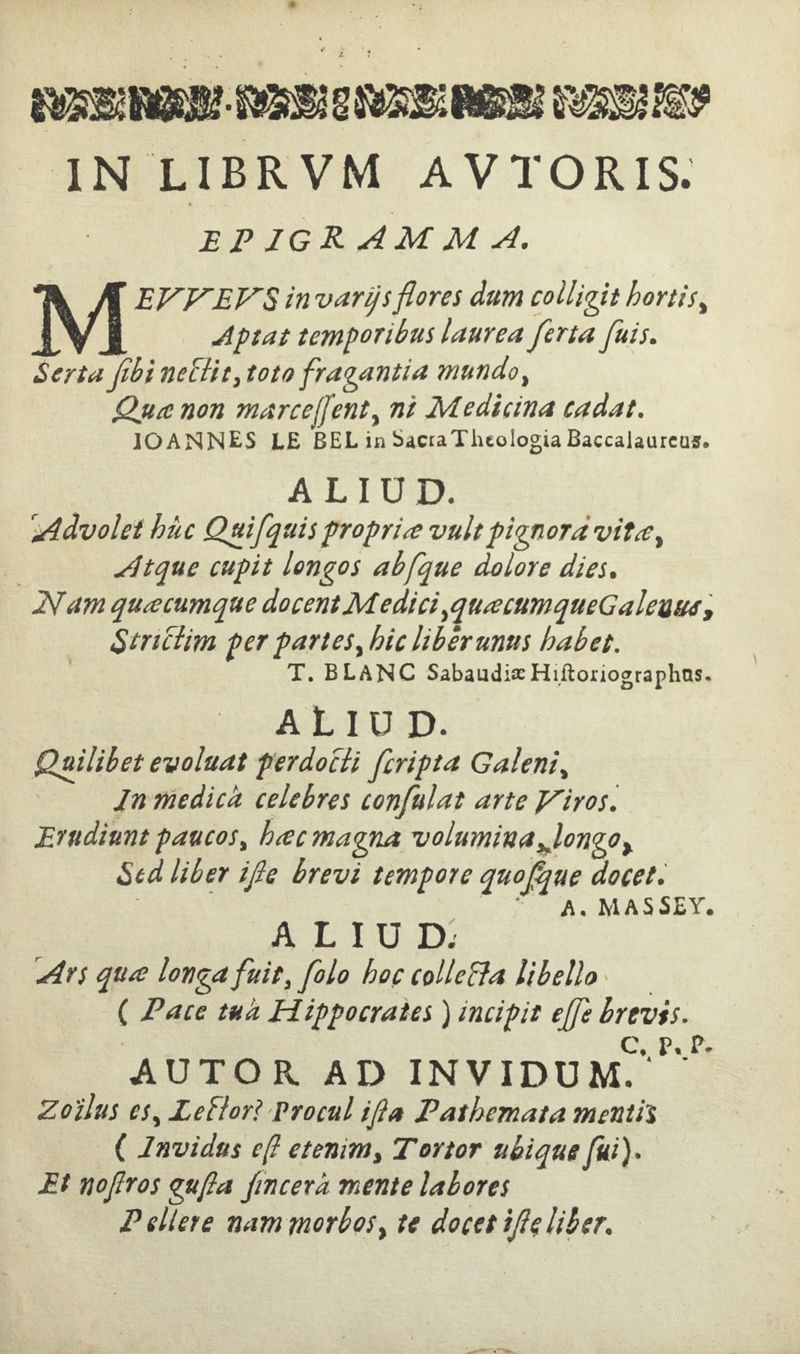 IN LIBRVM AVTORIS.
EPIGRAMMA.
MEVVEVS in varijs flores dum colligit hortis,
Aptat temporibus laurea ſerta ſuis.
Serta ſibi nectit, toto fragantia mundo,
Quæ non marceſſent, ni Medicina cadat.
IOANNES LE BEL in Sacra Theologia Baccalaureus.
ALIUD.
Advolet hûc Quiſquis propriæ vult pignora vitæ,
Atque cupit longos abſque dolore dies.
Nam quæcumque docent Medici, quæcumque Galenus,
Strictim per partes, hic liber unus habet.
T. BLANC Sabaudiæ Hiſtoriographus.
ALIUD.
Quilibet evoluat perdocti ſcripta Galeni,
In medicâ celebres conſulat arte Viros.
Erudiunt paucos, hæc magna volumina, longo,
Sed liber iſte brevi tempore quoſque docet.
A. MASSEY.
ALIUD.
Ars quæ longa fuit, ſolo hoc collecta libello
( Pace tuâ Hippocrates ) incipit eſſe brevis.
C. P. P.
AUTOR AD INVIDUM.
Zoïlus es, Lector? Procul iſta Pathemata mentis
( Invidus eſt etenim, Tortor ubique ſui).
Et noſtros guſta ſincerâ mente labores
Pellere nam morbos, te docet iſte liber.